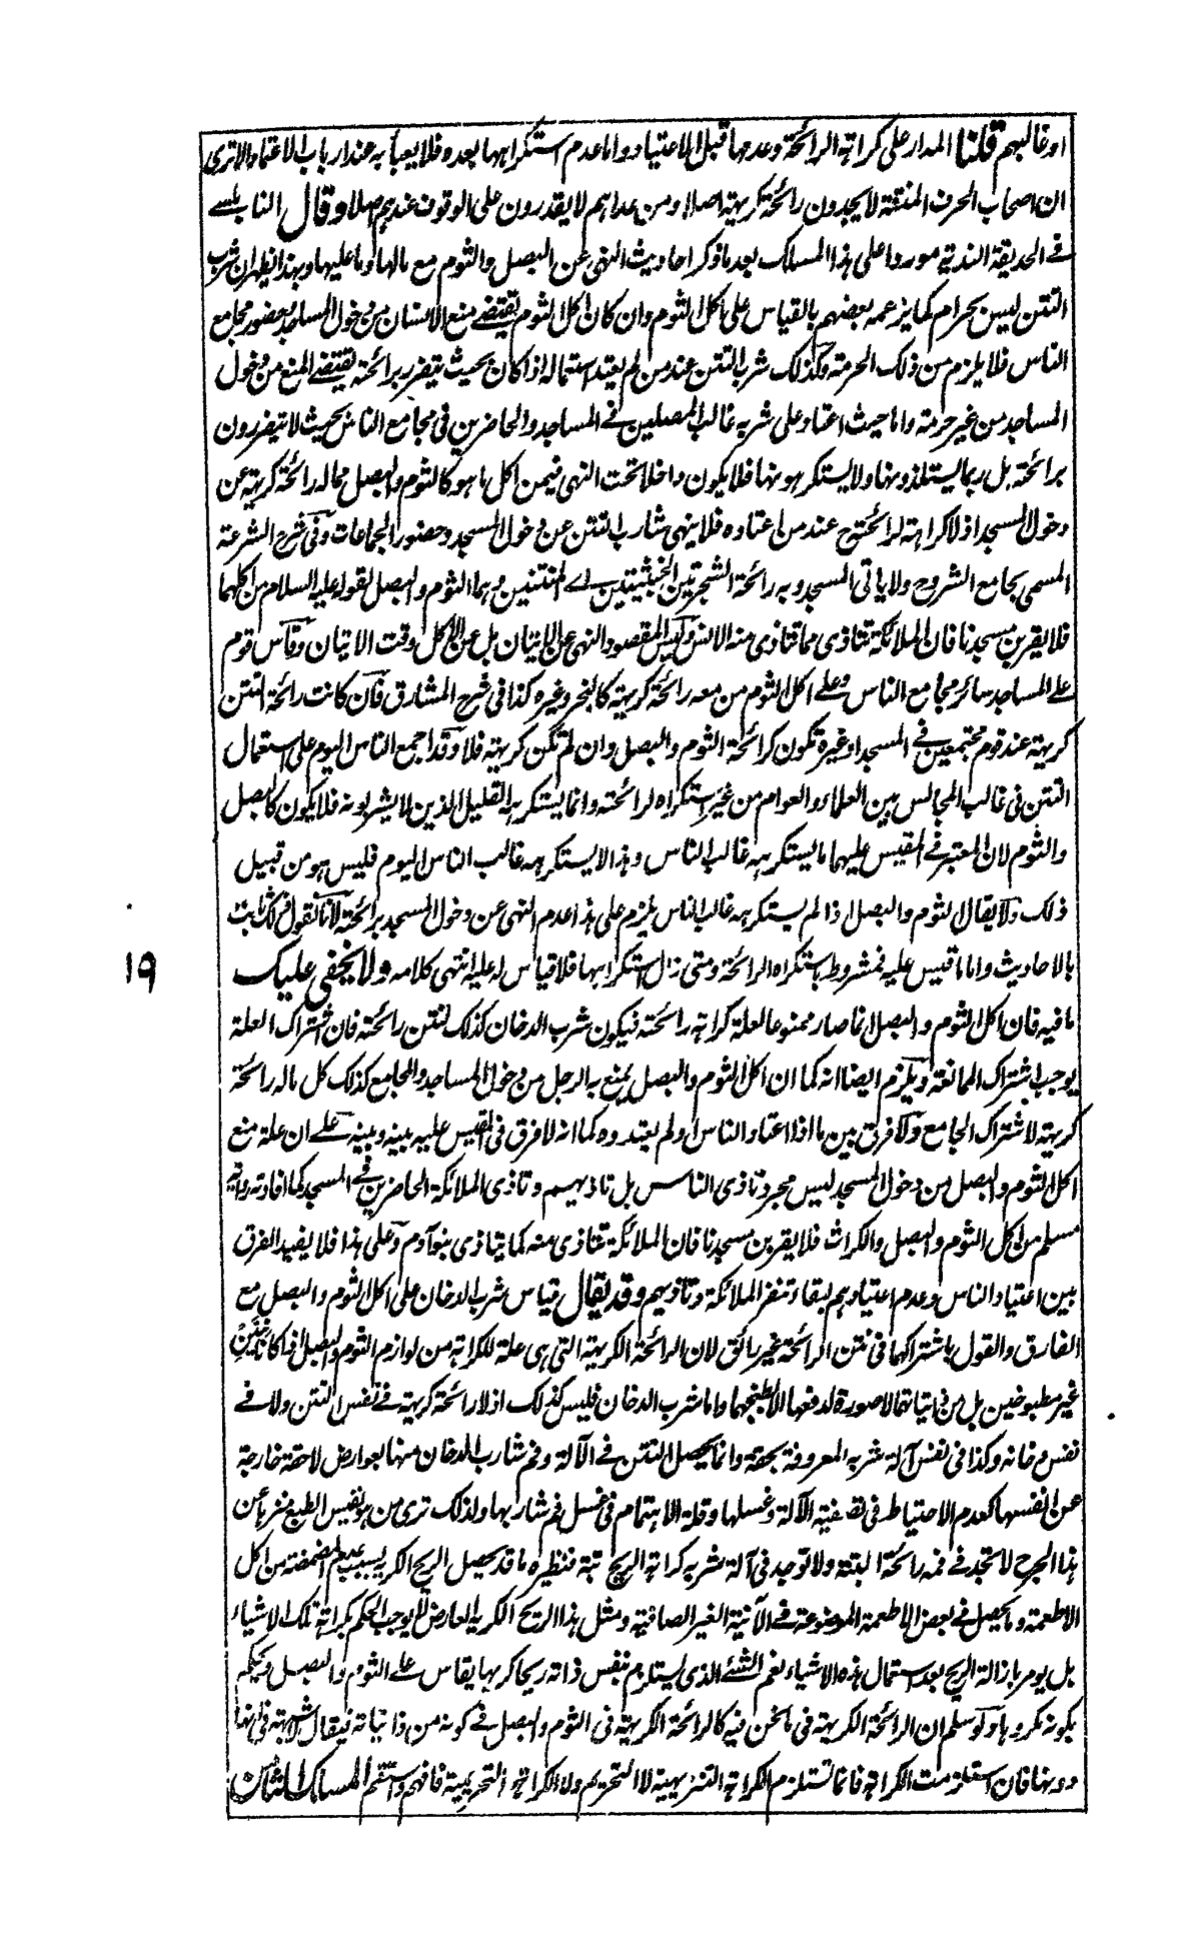 او غالبهم قلنا المدار علی کراهة الرائحة وعدمها قبل الاعتیاد واما عدم استکراهها بعده فلا یعبأ به عند ارباب الاعتماد الا تری
ان اصحاب الحرف المنتنة لا یجدون رائحة کریهة اصلا ومن عداهم لا یقدرون علی الوقوف عندهم اصلا وقال النابلسے
فے الحدیقة الندیة موردا علی هذا المسلک بعد ما ذکر احادیث النهی عن البصل والثوم مع مالها وما علیها وبهذا یظهر ان شرب
التتن لیس بحرام کما یزعمه بعضهم بالقیاس علی اکل الثوم وان کان اکل الثوم یقتضے منع الانسان من دخول المساجد بحضور مجامع
الناس فلا یلزم من ذلک الحرمة وکذلک شرب التتن عند من لم یعتد استعماله اذا کان بحیث یتضرر برائحته یقتضے المنع من دخول
المساجد من غیر حرمة واما حیث اعتاد علی شربه غالب المصلین فے المساجد والحاضرین فی مجامع الناس بحیث لا یتضررون
برائحته بل ربما یستلذونها ولا یستکرهونها فلا یکون داخلا تحت النهی فیمن اکل ما هو کالثوم والبصل مما له رائحة کریهة عن
دخول المسجد اذ لا کراهة لرائحته ح عند من اعتاده فلا ینهی شارب التتن عن دخول المسجد وحضور الجماعات وفی شرح الشرعة
المسمی بجامع الشروح ولا یاتی المسجد وبه رائحة الشجرتین الخبیثتین اے المنتنین وهما الثوم والبصل لقوله علیه السلام من اکلهما
فلا یقربن مسجدنا فان الملائکة تتاذی مما تتاذی منه الانس ولیس المقصود النهی عن الاتیان بل عن الاکل وقت الاتیان وقاس قوم
علے المساجد سائر مجامع الناس وعلے اکل الثوم من معه رائحة کریهة کالبخر وغیره کذا فی شرح المشارق فان کانت رائحة التتن
کریهة عند قوم مجتمعین فے المسجد او غیره تکون کرائحة الثوم والبصل وان لم تکن کریهة فلا وقد اجمع الناس الیوم علی استعمال
التتن فی غالب المجالس بین العلماء والعوام من غیر استکراه لرائحته وانما یستکرهه القلیل الذین لا یشربونه فلا یکون کالبصل
والثوم لان المعتبر فے المقیس علیهما ما یستکرهه غالب الناس وهذا لا یستکرهه غالب الناس الیوم فلیس هو من قبیل
ذلک ولا یقال الثوم والبصل اذا لم یستکرهه غالب الناس یلزم علی هذا عدم النهی عن دخول المسجد برائحته لانا نقول ذلک ثابت
بالاحادیث واما ما قیس علیه فمشروط باستکراه الرائحة ومتی زال استکراهها فلا قیاس له علیه انتهی کلامه ولا یخفی علیک
ما فیه فان اکل الثوم والبصل انما صار ممنوعا لعلة کراهة رائحته فیکون شرب الدخان کذلک لنتن رائحته فان اشتراک العلة
یوجب اشتراک الممانعة ویلزم ایضا انه کما ان اکل الثوم والبصل یمنع به الرجل من دخول المساجد والمجامع کذلک کل ما له رائحة
کریهة لاشتراک الجامع ولا فرق بین ما اذا اعتاد الناس او لم یعتدوه کما انه لا فرق فی المقیس علیه بینه وبینه علے ان علة منع
اکل الثوم والبصل من دخول المسجد لیس مجرد تاذی الناس بل تاذیهم وتاذی الملائکة الحاضرین فے المسجد کما افادته روایة
مسلم من اکل الثوم والبصل والکراث فلا یقربن مسجدنا فان الملائکة تتاذی منه کما یتاذی بنو آدم وعلی هذا فلا یفید الفرق
بین اعتیاد الناس وعدم اعتیادهم لبقاء تنفر الملائکة وتاذیهم وقد یقال قیاس شرب الدخان علی اکل الثوم والبصل مع
الفارق والقول باشتراکهما فی نتن الرائحة غیر رائق لان الرائحة الکریهة التی هی علة للکراهة من لوازم الثوم والبصل اذا کانا نیین
غیر مطبوخین بل من ذاتیاتهما لا صورة لدفعها الا طبخهما واما شرب الدخان فلیس کذلک اذ لا رائحة کریهة فے نفس التتن ولا فے
نفس دخانه وکذا فی نفس آلة شربه المعروفة بحقة وانما یحصل النتن فے الآلة وفم شارب الدخان منها بعوارض لاحقة خارجة
عن انفسها کعدم الاحتیاط فی تصفیة الآلة وغسلها وقلة الاهتمام فی غسل فم شاربها ولذلک تری من هو نفیس الطبع متنزها عن
هذا الجرح لا تجد فے فمه رائحة البتة ولا توجد فی آلة شربه کراهة الریح بتة فنظیره ما قد یحصل الریح الکریه بسبب عدم المضمضة من اکل
الاطعمة وما یحصل فے بعض الاطعمة الموضوعة فے الآنیة الغیر الصافیة ومثل هذا الریح الکریه العارض لا یوجب الحکم بکراهة تلک الاشیاء
بل یومر بازالة الریح بعد استعمال هذه الاشیاء نعم الشئے الذی یستلزم بنفس ذاته ریحا کریها یقاس علے الثوم والبصل ویحکم
بکونه مکروها ولو سلم ان الرائحة الکریهة فی ما نحن فیه کالرائحة الکریهة فی الثوم والبصل فے کونه من ذاتیاته فیقال شبهة فی انها
دونها فان استلزمت الکراهة فانما تستلزم الکراهة التنزیهیة لا التحریم ولا الکراهة التحریمیة فافهم واستقم المسلک الثامن
١٩